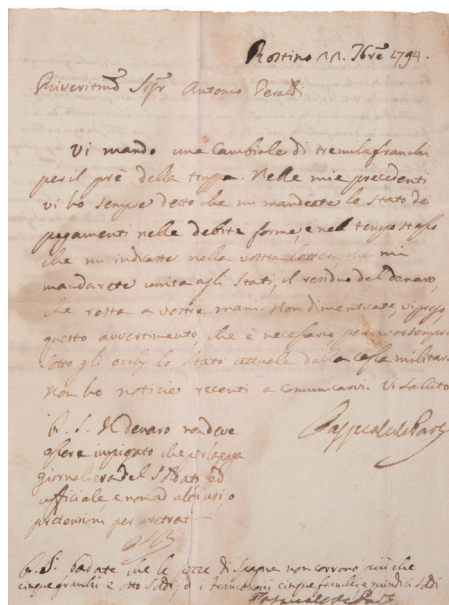 Rostino 11. 7bre 1794.
Riveritmo Sigr Antonio Peraldi
Vi mando una Cambiale di tremila franchi
per il prè della troppa. Nelle mie precedenti
vi ho sempre detto che mi mandiate lo Stato de
pagamenti nelle debite forme, e nel tempo stesso
che mi indicaste nella vostra lettera che mi
mandarete unita agli Stati, il residuo del denaro,
che resta a vostre mani. Non dimenticate, vi prego,
questo avvertimento, che è necessario per aver sempre
sotto gli occhi lo Stato attuale della cassa militare
Non ho notizie recenti a comunicarvi. Vi saluto
Pasquale de Paoli
P. S. Il denaro non deve
essere impiegato che per la paga
giornaliera del Soldato ed
ufficiale, e non ad altri usi, o
pretensioni per
P. S. badate che le di Spagna non corrono più che
cinque franchi e otto Soldi, e i francesoni cinque franchi e quindici Soldi
Pasquale de Paoli